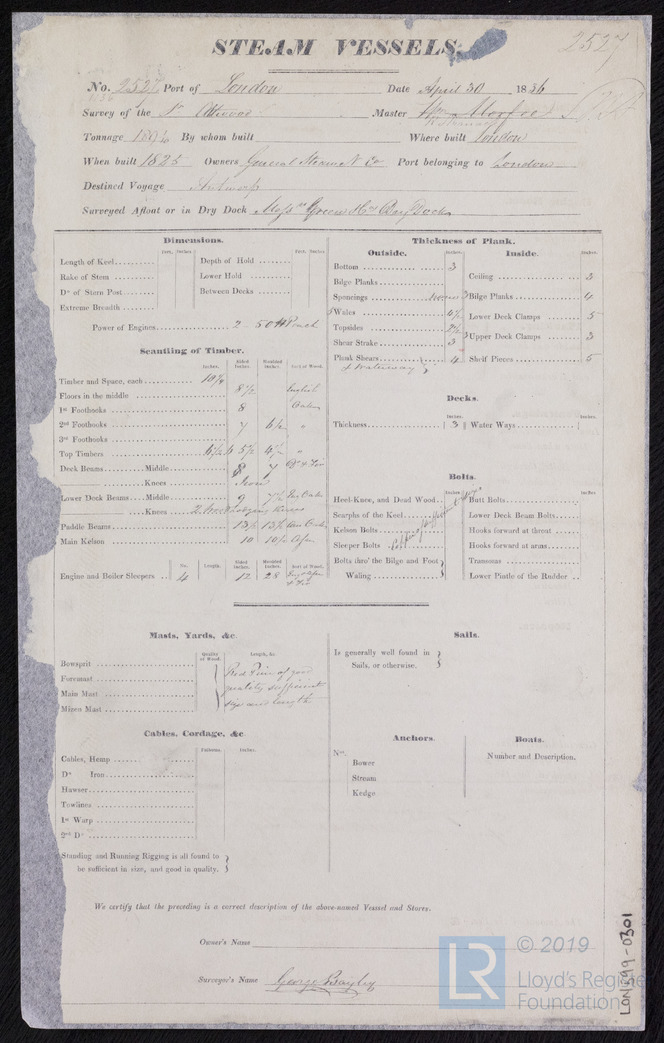 STEAM VESSELS.
2527
No. 2527 Port of London Date April 30 1836
Survey of the Sr Attwood Master Wm
Tonnage By whom built Where built London
When built 1825 Owners General Steam N Co Port belonging to London
Destined Voyage Antwerp
Surveyed Afloat or in Dry Dock Messrs Green &Co's Dock
Dimensions.
Feet. Inches. Feet. Inches.
Length of Keel Depth of Hold
Rake of Stem Lower Hold
Do of Stern Post Between Decks
Extreme Breadth
Power of Engines 2 - 50 H P each
Thickness of Plank.
Outside. Inside.
Inches. Inches.
Bottom 3 Ceiling 3
Bilge Planks Bilge Planks 4
Sponcings
Wales 4½ Lower Deck Clamps 5
Topsides 2½ Upper Deck Clamps 3
Shear Strake 3
Plank Shears 4 Shelf Pieces 5
& Waterway
Scantling of Timber.
Inches. Sided Inches. Moulded Inches. Sort of Wood.
Timber and Space, each
Floors in the middle 8½ English
1st Foothooks 8 Oak
2nd Foothooks 7 6½ "
3rd Foothooks
Top Timbers 5½ "
Deck Beams Middle 8 7 & Fir
Knees Iron
Lower Deck Beams Middle 9 7½ Oak
Knees 2 Iron Knees
Paddle Beams 13½ 13½ Oak
Main Kelson 10 10½ Afn
No. Length. Sided Inches. Moulded Inches. Sort of Wood.
Engine and Boiler Sleepers 4 12 28
& Fir
Decks.
Inches. Inches.
Thickness 3 Water Ways
Bolts.
Inches Inches
Heel-Knee, and Dead Wood Butt Bolts
Scarphs of the Keel Lower Deck Beam Bolts
Kelson Bolts Hooks forward at throat
Sleeper Bolts Hooks forward at arms
Bolts thro' the Bilge and Foot Transoms
Waling Lower Pintle of the Rudder
Masts, Yards, &c.
Quality of Wood. Length, &c.
Bowsprit
Foremast
Main Mast
Mizen Mast
Red Pine of good
quality sufficient
size and length
Sails.
Is generally well found in
Sails, or otherwise.
Cables, Cordage, &c
Fathoms. Inches.
Cables, Hemp
Do Iron
Hawser
Towlines
1st Warp
2nd Do
Standing and Running Rigging is all found to
be sufficient in size, and good in quality.
Anchors.
Nos.
Bower
Stream
Kedge
Boats.
Number and Description.
We certify that the preceding is a correct description of the above-named Vessel and Stores.
Owner's Name
Surveyor's Name George Bayley
LR
© 2019
Lloyd's Register
Foundation
LON599-0301